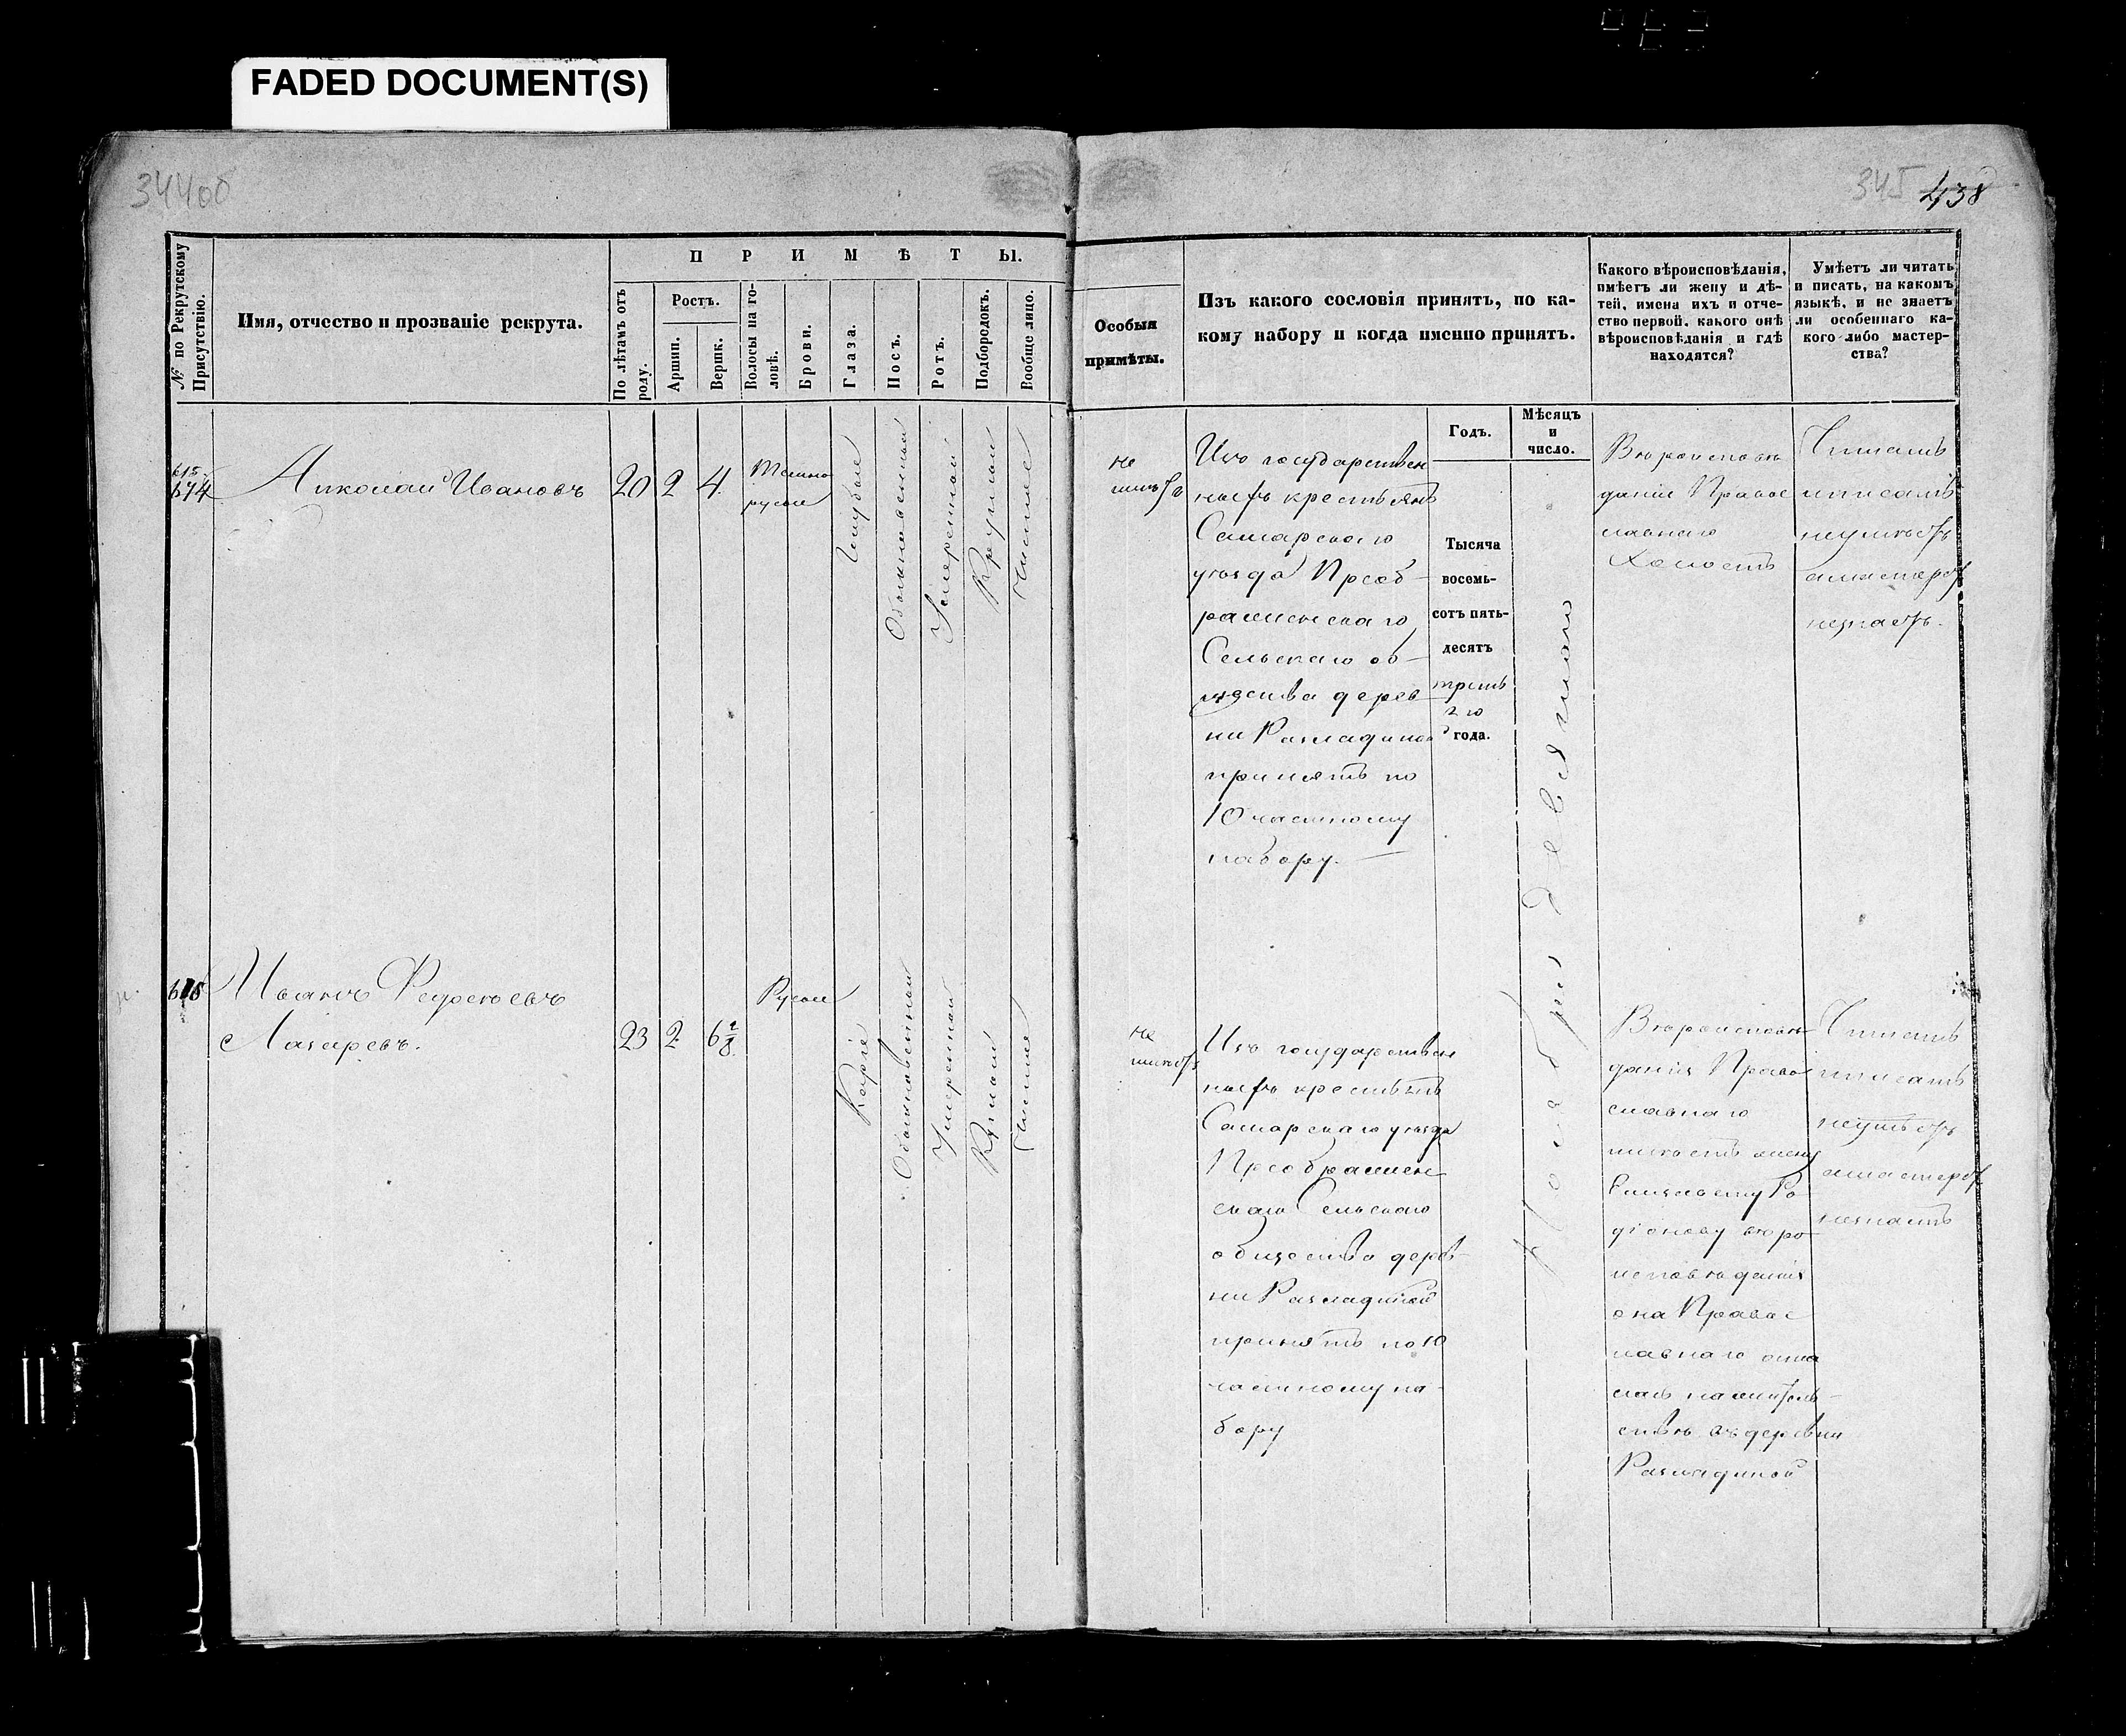 FADED DOCUMENT(S)
344об
345 438
№ по Рекрутскому Присутствію.
Имя, отчество и прозваніе рекрута.
ПРИМѢТЫ.
По лѣтамъ отъ роду.
Ростъ.
Аршин.
Вершк.
Волосы на головѣ.
Брови.
Глаза.
Носъ.
Ротъ.
Подбородокъ.
Вообще лицо.
Особыя
примѣты.
Изъ какого сословія принятъ, по ка-
кому набору и когда именно принятъ.
Какого вѣроисповѣданія,
имѣетъ ли жену и дѣ-
тей, имена ихъ и отче-
ство первой, какого онѣ
вѣроисповѣданія и гдѣ
находятся?
Умѣетъ ли читать
и писать, на какомъ
языкѣ, и не знаетъ
ли особеннаго ка-
кого-либо мастер-
ства?
Годъ.
Мѣсяцъ
и
число.
Николай Ивановъ
20 2 4
Темно
русые
Голубые
Обыкновенный
Умеренный
Круглый
Чистое
не
имѣетъ
Изъ государствен
ныхъ крестьянъ
Самарскаго
уѣзда Преоб-
раженскаго
Сельскаго об-
щества дерев
ни Разладиной
принятъ по
10 частному
набору.
Тысяча
восемь-
сотъ пять-
десятъ
треть
яго
года.
Ноября девятаго
Вѣроисповѣ
данія Правос
лавнаго
Холостъ
Читать
иписать
неумѣетъ
амастерст
незнаетъ.
Иванъ Федотовъ
Лазаревъ.
23 2 6 2/8
Русые
Каріе
Обыкновенный
Умеренный
Круглый
Чистое
не
имѣетъ
Изъ государствен
ныхъ крестьянъ
Самарскаго уѣзда
Преображен
скаго Сельскаго
общества дерев-
ни Разладиной
принятъ по 10
частному на-
бору
Вѣроисповѣ
данія Право
славнаго
имѣетъ жену
Елизавету Ро-
діонову вѣро-
исповѣданія
она Правос
лавнаго оста
лась нажитель-
ствѣ въ деревни
Разладиной
Читать
иписать
неумѣетъ
амастерст
незнаетъ